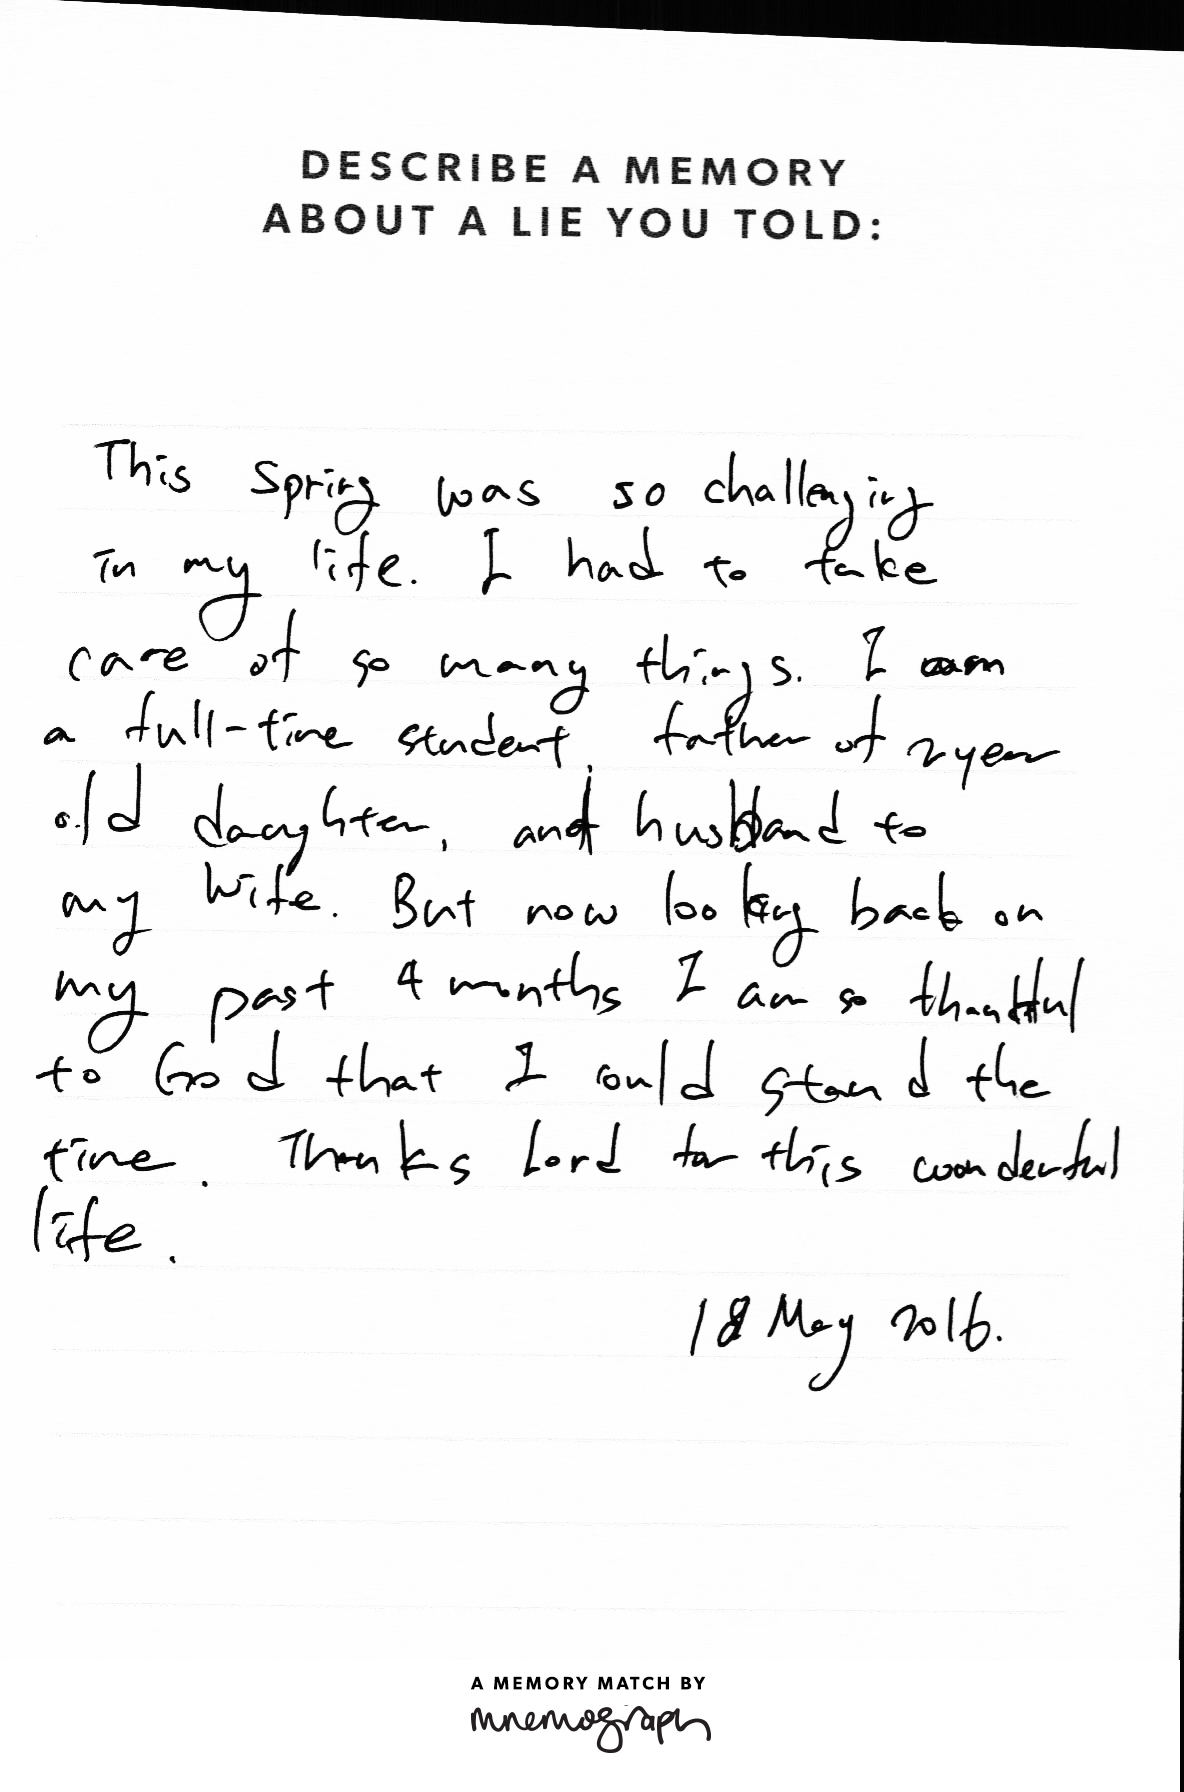 DESCRIBE A MEMORY
ABOUT A LIE YOU TOLD:
This Spring was so challenging
in my life. I had to take
care of so many things. I am
a full-time student, father of 2 year
old daughter, and husband to
my wife. But now looking back on
my past 4 months I am so thankful
to God that I could stand the
time. Thanks Lord for this wonderful
life.
18 May 2016.
A MEMORY MATCH BY
mnemograph